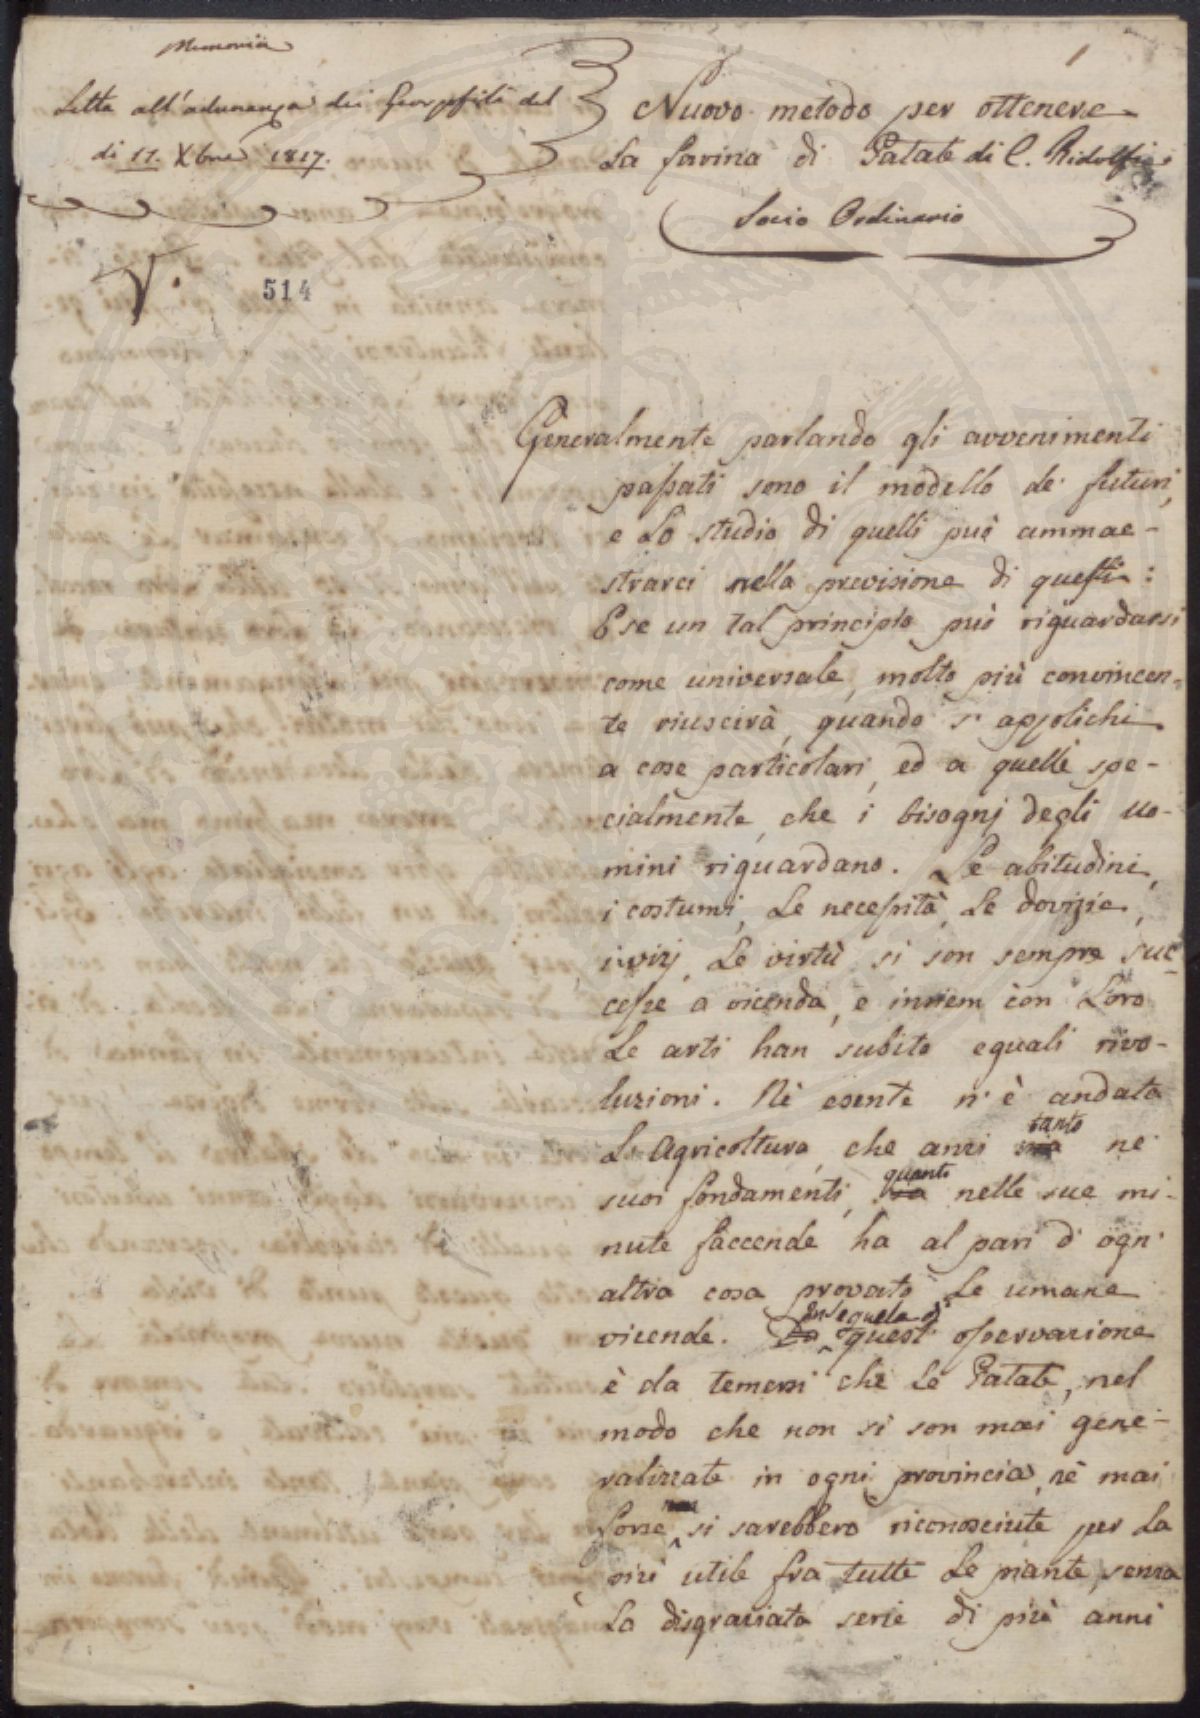 Memoria
Letta all'adunanza dei Georgofili del
dì 11. Xbre 1817.
1
Nuovo metodo per ottenere
La farina di Patate di C. Ridolfi
Socio Ordinario
V.
514
Generalmente parlando gli avvenimenti
passati sono il modello de' futuri,
e Lo studio di quelli può ammae-
strarci nella previsione di questi:
E se un tal principio può riguardarsi
come universale, molto più convincen-
te riuscirà, quando s'applichi
a cose particolari, ed a quelle spe-
cialmente, che i bisogni degli uo-
mini riguardano. Le abitudini,
i costumi, Le necessità, Le dovizie,
i vizj, Le virtù si son sempre suc-
cesse a vicenda, e insiem con Loro
Le arti han subito eguali rivo-
luzioni. Nè esente n'è andata
L'Agricoltura, che anzi tanto ne'
suoi fondamenti, quanto nelle sue mi-
nute faccende ha al pari d'ogn'
altra cosa provato Le umane
vicende. In sequela di quest'osservazione
è da temersi che Le Patate, nel
modo che non si son mai gene-
ralizzate in ogni provincia, nè mai
forse si sarebbero riconosciute per La
più utile fra tutte Le piante, senza
La disgraziata serie di più anni